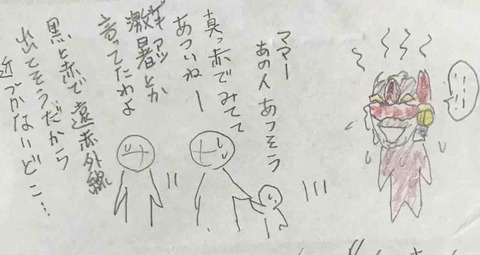 ママー
あの人あつそう
真っ赤でみてて
あついねー
ゲキアツ
激暑とか
言ってたわよ
黒と赤で遠赤外線
出てそうだから
近づかないどこ…
…!!